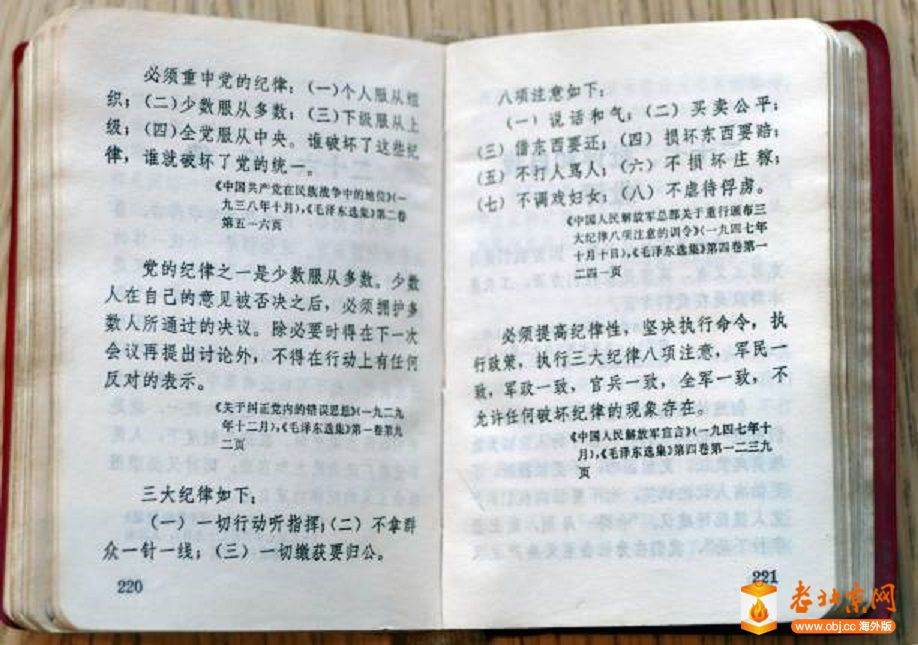 必须重申党的纪律：（一）个人服从组
织；（二）少数服从多数；（三）下级服从上
级；（四）全党服从中央。谁破坏了这些纪
律，谁就破坏了党的统一。
《中国共产党在民族战争中的地位》（一
九三八年十月），《毛泽东选集》第二卷
第五一六页
党的纪律之一是少数服从多数。少数
人在自己的意见被否决之后，必须拥护多
数人所通过的决议。除必要时得在下一次
会议再提出讨论外，不得在行动上有任何
反对的表示。
《关于纠正党内的错误思想》（一九二九
年十二月），《毛泽东选集》第一卷第九
二页
三大纪律如下：
（一）一切行动听指挥；（二）不拿群
众一针一线；（三）一切缴获要归公。
220
八项注意如下：
（一）说话和气；（二）买卖公平；
（三）借东西要还；（四）损坏东西要赔；
（五）不打人骂人；（六）不损坏庄稼；
（七）不调戏妇女；（八）不虐待俘虏。
《中国人民解放军总部关于重行颁布三
大纪律八项注意的训令》（一九四七年
十月十日），《毛泽东选集》第四卷第一
二四一页
必须提高纪律性，坚决执行命令，执
行政策，执行三大纪律八项注意，军民一
致，军政一致，官兵一致，全军一致，不
允许任何破坏纪律的现象存在。
《中国人民解放军宣言》（一九四七年十
月），《毛泽东选集》第四卷第一二三九
页
221
老北京网
www.obj.cc 海外版